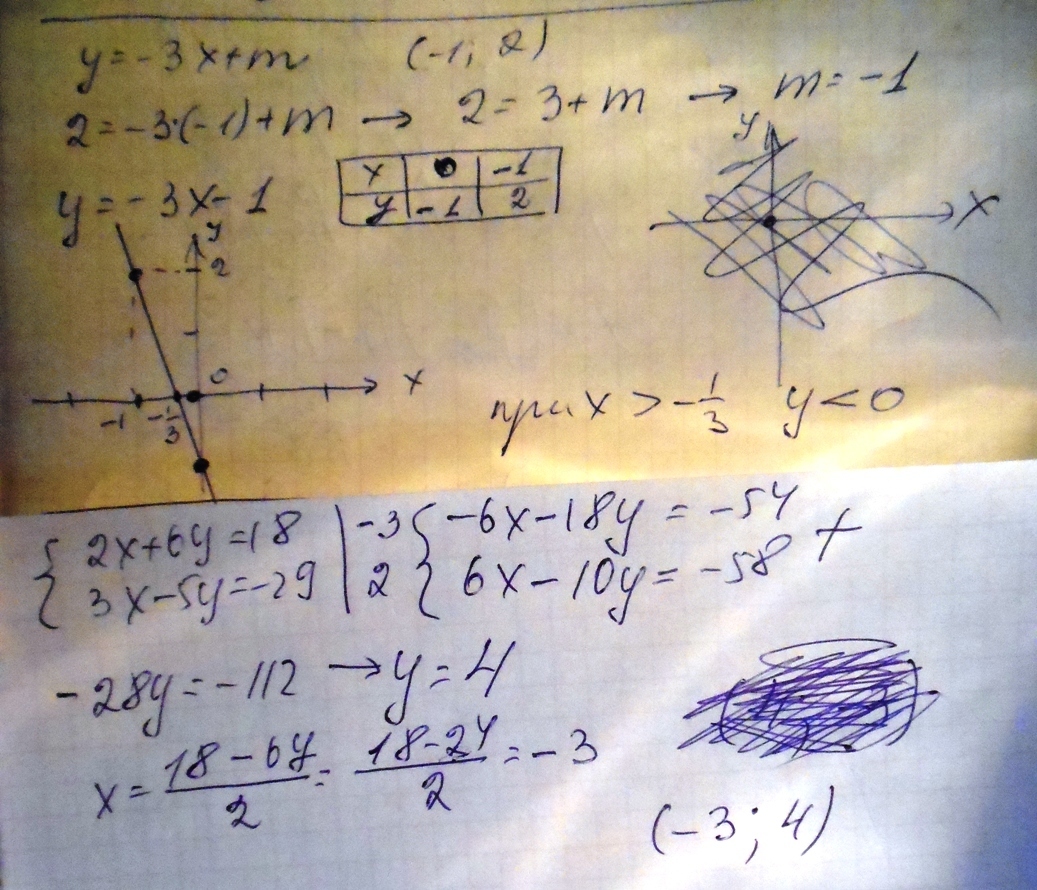 y=-3x+m (-1; 2)
2=-3·(-1)+m → 2=3+m → m=-1
y=-3x-1
x 0 -1
y -1 2
y
2
0
x
-1 -1/3
y
x
при x > -1/3 y<0
{ 2x+6y=18 | -3 { -6x-18y=-54 +
{ 3x-5y=-29 | 2 { 6x-10y=-58
-28y=-112 → y=4
x= (18-6y)/2 = (18-24)/2 = -3
(-3; 4)